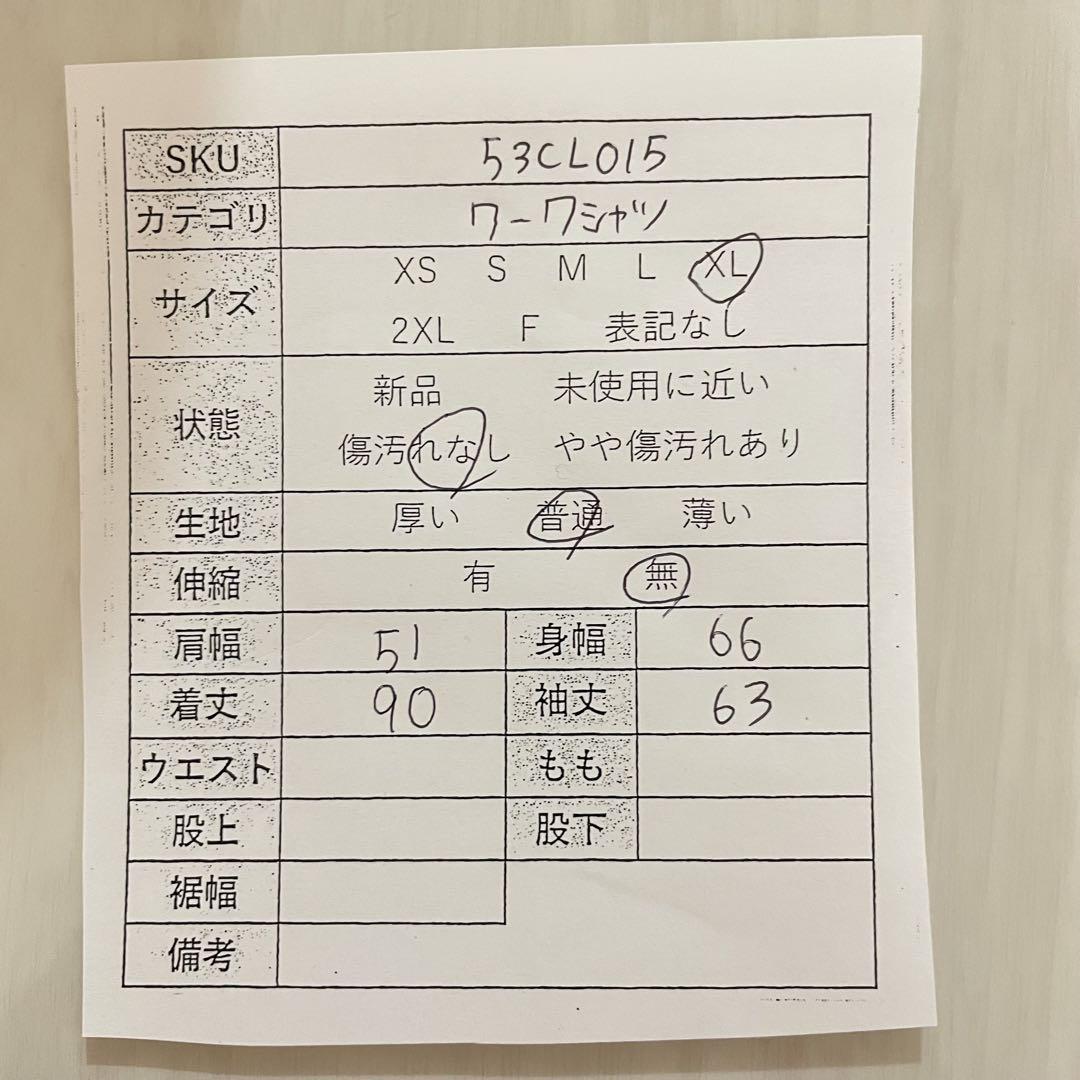 SKU 53CL015
カテゴリ ワークシャツ
サイズ XS S M L XL
2XL F 表記なし
状態 新品 未使用に近い
傷汚れなし やや傷汚れあり
生地 厚い 普通 薄い
伸縮 有 無
肩幅 51 身幅 66
着丈 90 袖丈 63
ウエスト もも
股上 股下
裾幅
備考